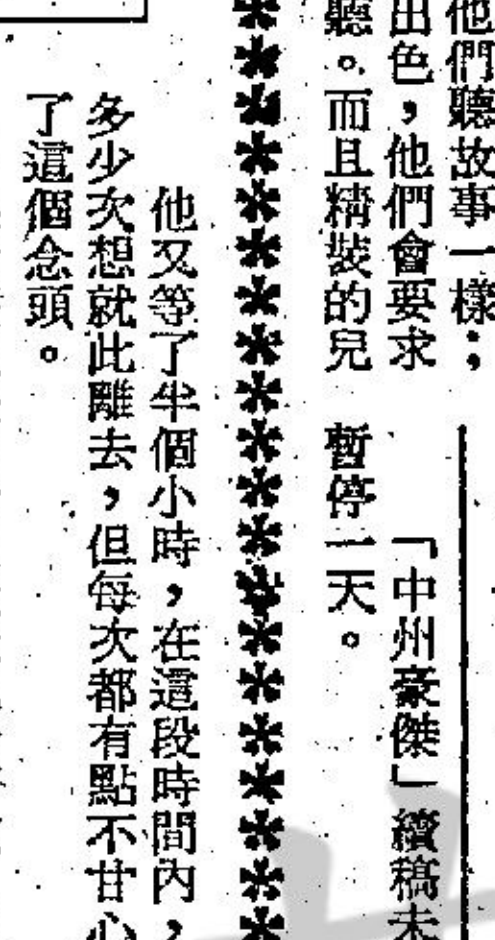 他們聽故事一樣；
出色，他們會要求
聽。而且精裝的兒
「中州豪傑」續稿未
暫停一天。
他又等了半個小時，在這段時間內，
多少次想就此離去，但每次都有點不甘心
了這個念頭。